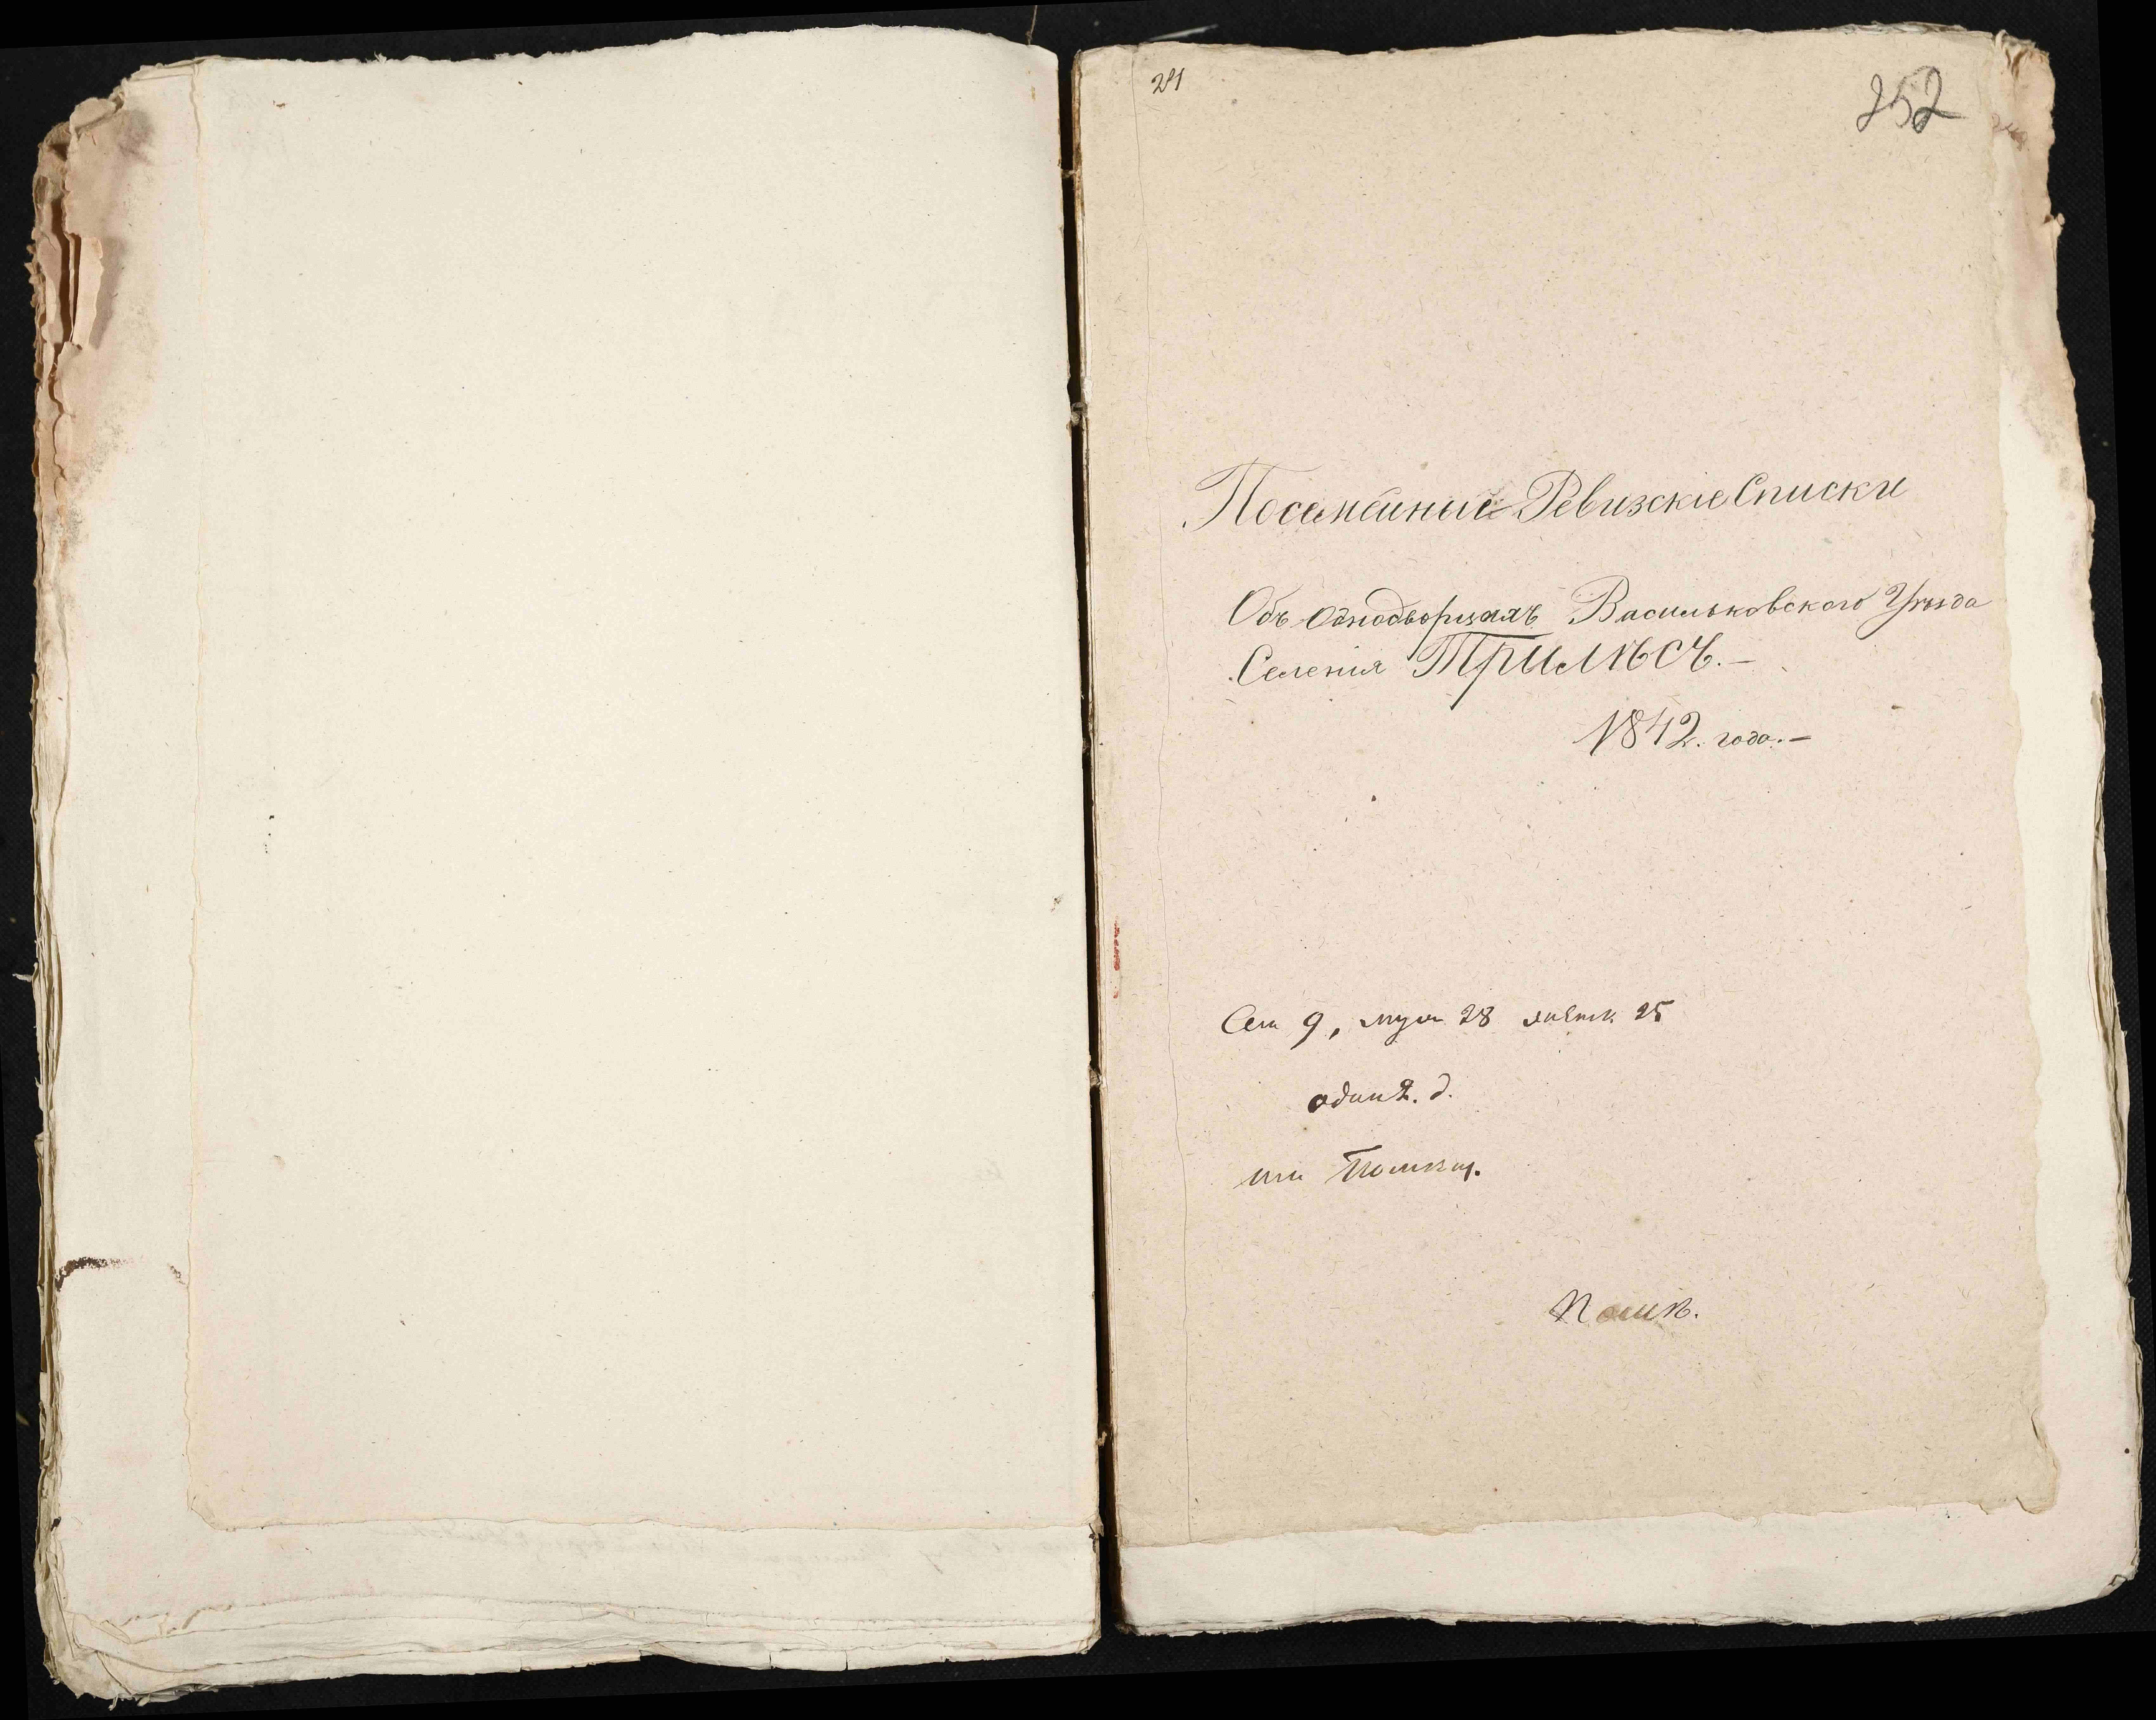 291
252
Посемейные Ревизскіе Списки
Объ Однодворцахъ Васильковскаго Уѣзда
Селенія Трилѣсъ.—
1842. года.—
Сем 9, муж 28 женск 25
один. д.